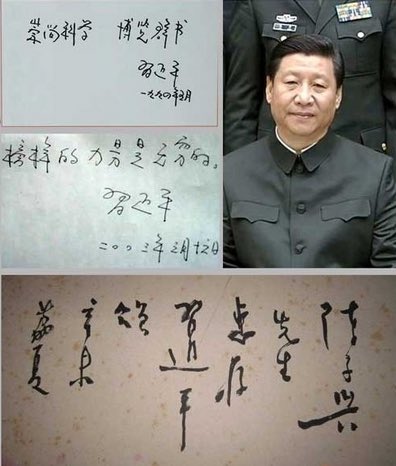 崇尚科学 博览群书
習近平
一九九〇年五月
榜样的力量是无穷的。
習近平
二〇〇三年三月
陈子兴
先生
惠存
習近平
辛未